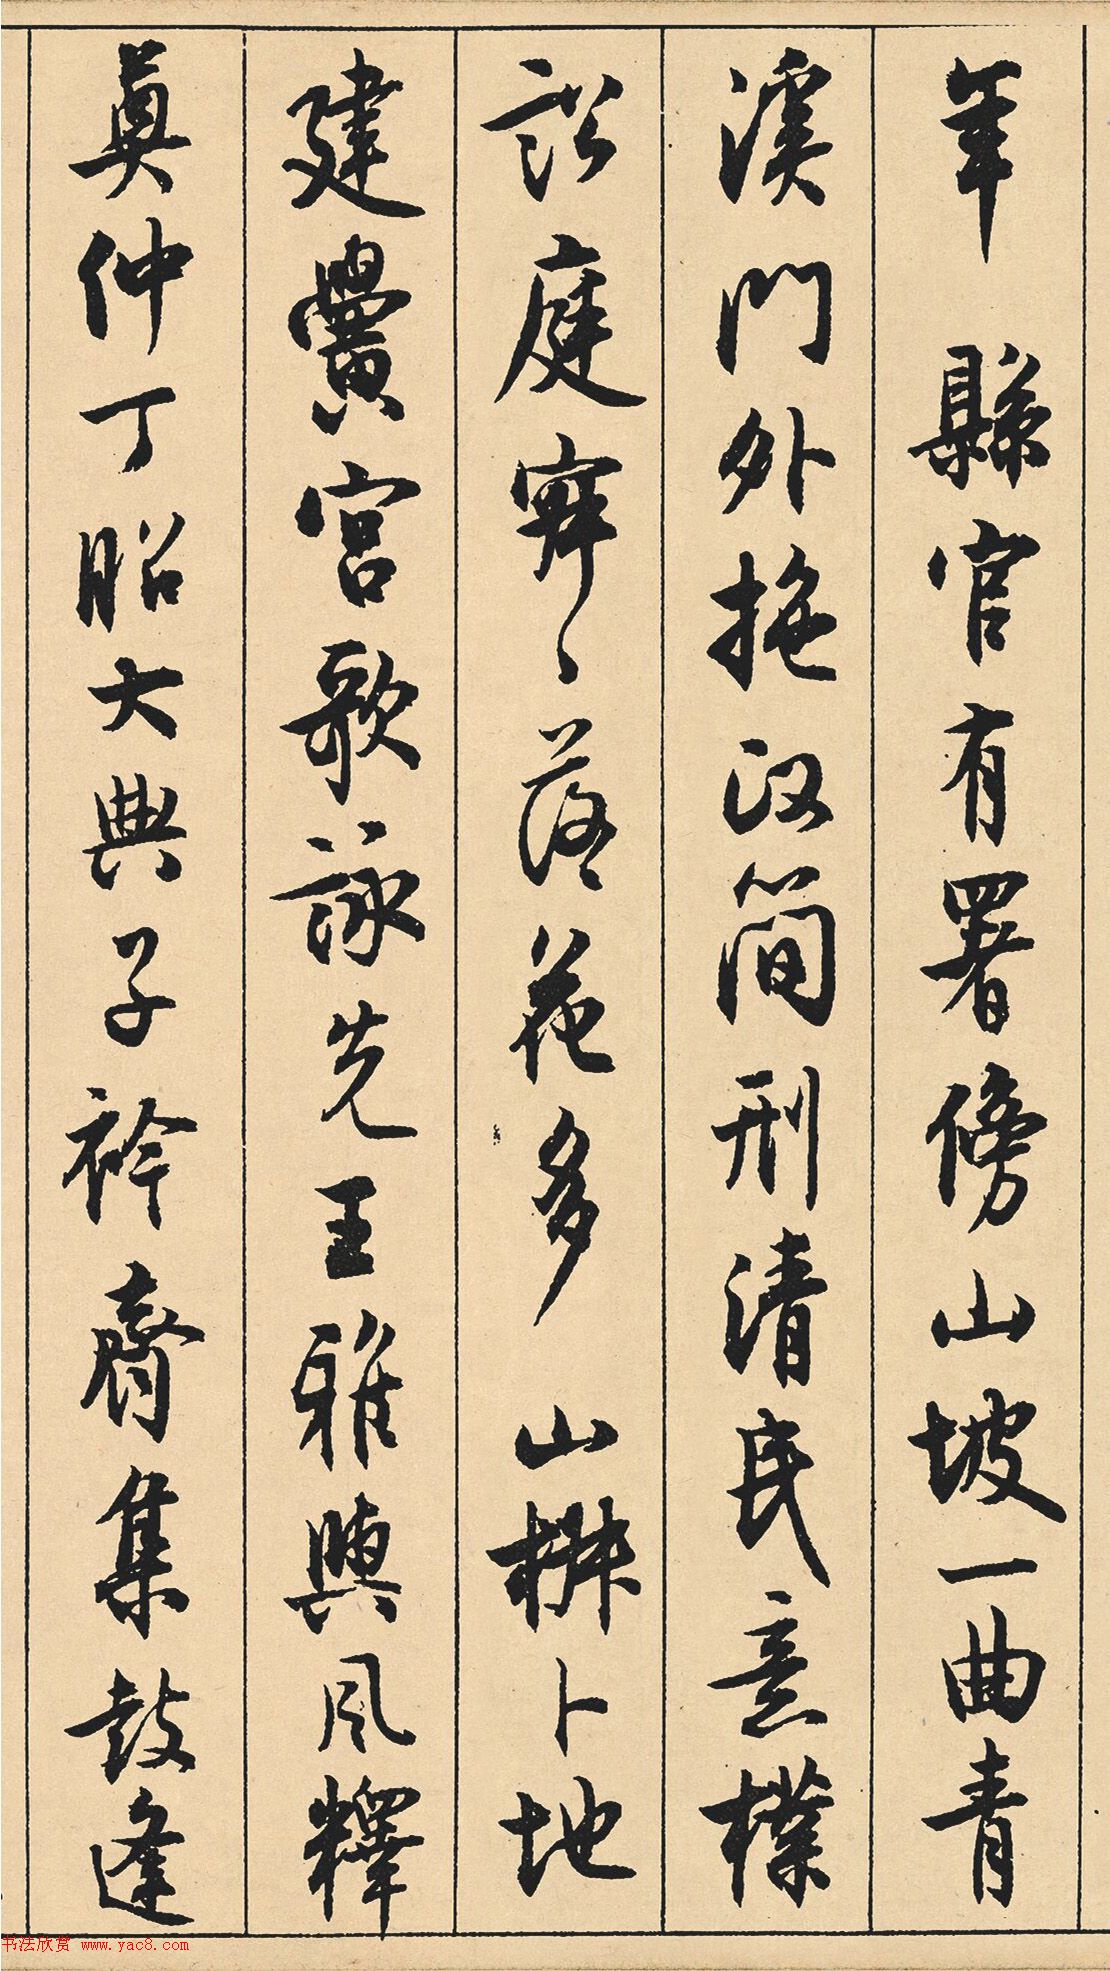 年 縣官有署傍山坡一曲青
溪門外拖政簡刑清民意樸
訟庭寂〻落花多 山椒卜地
建黌宮歌詠先王雅與風釋
奠仲丁昭大典子衿齊集鼓逢
书法欣赏 www.yac8.com